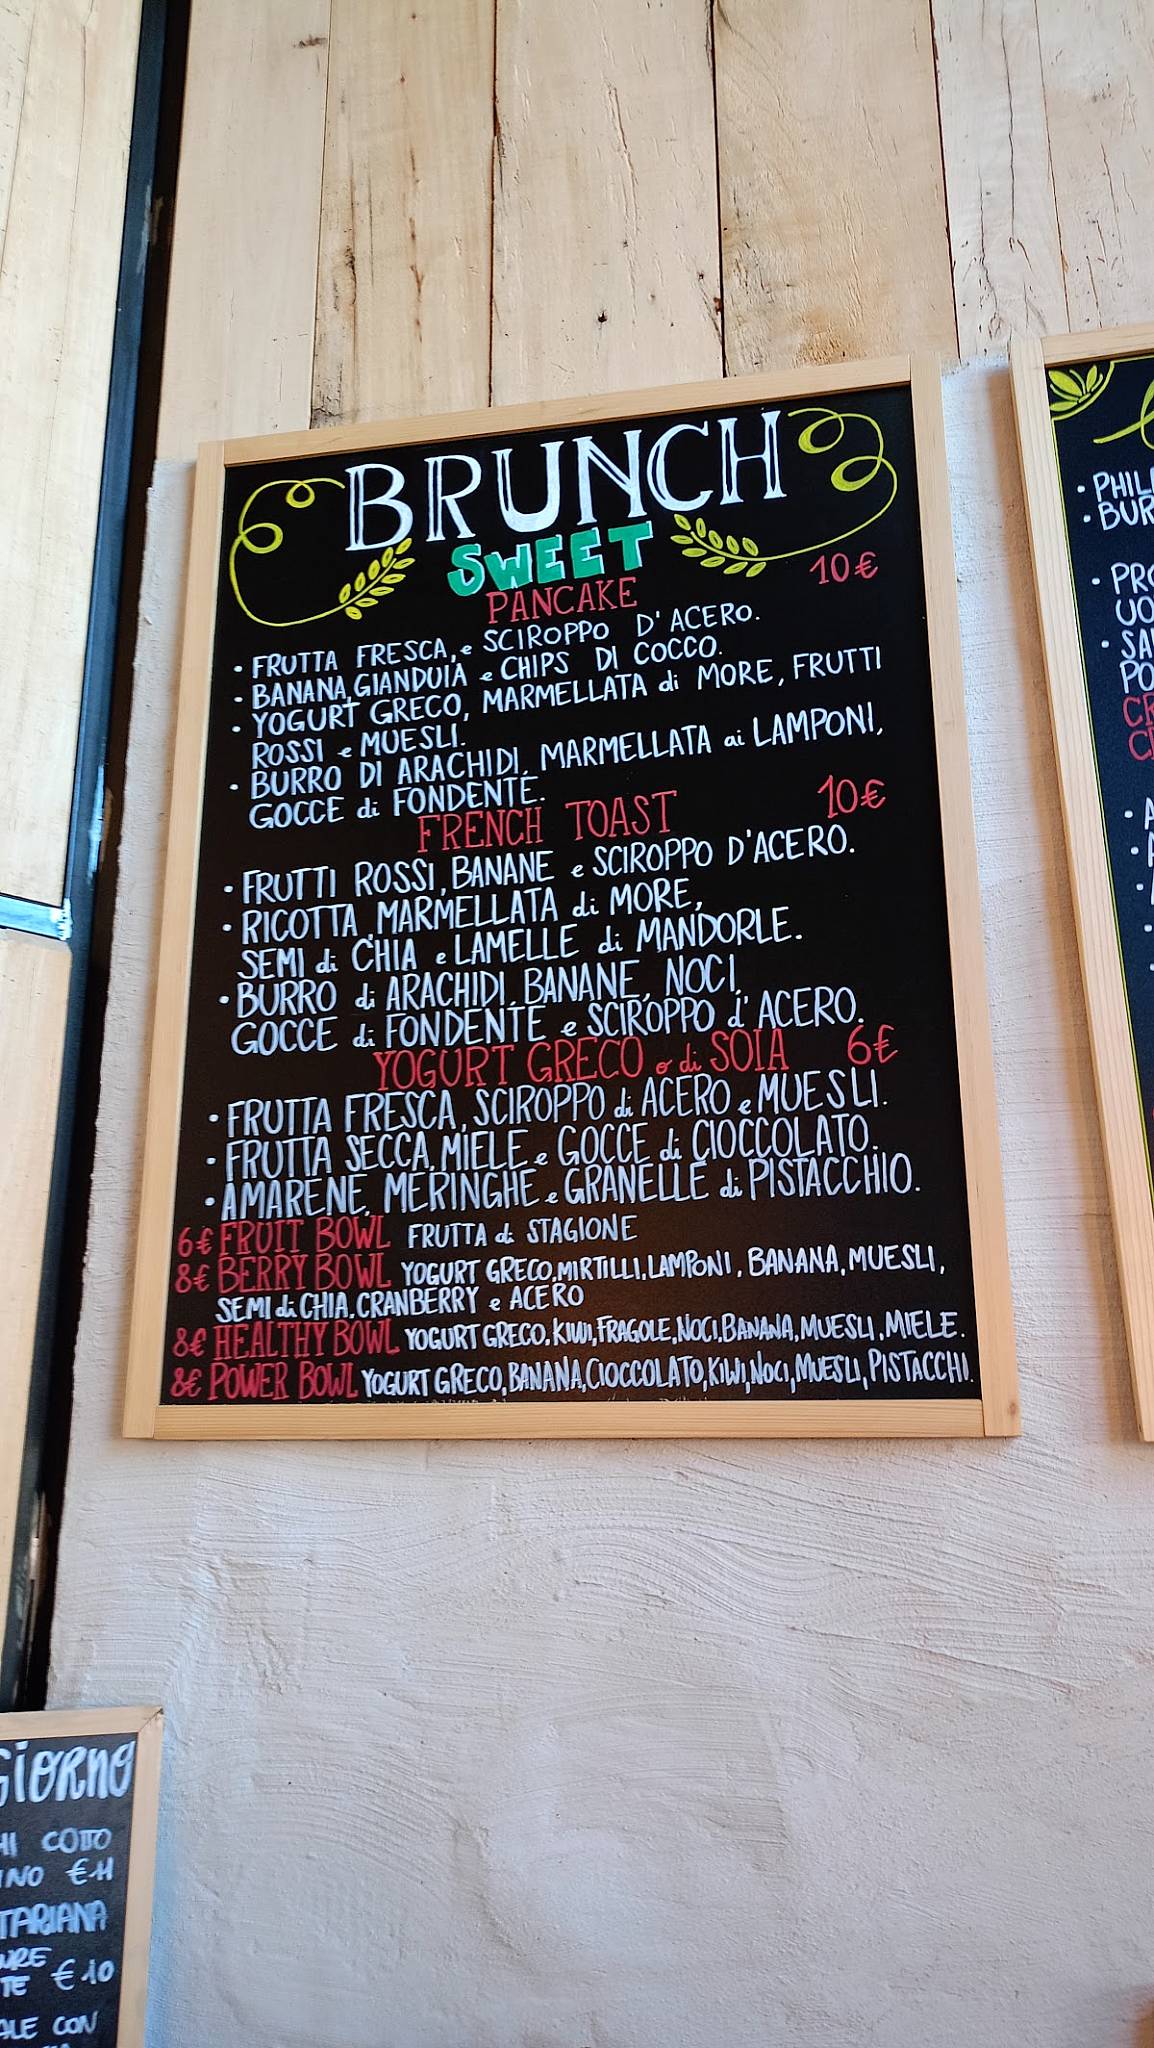 BRUNCH
SWEET
PANCAKE 10€
• FRUTTA FRESCA, e SCIROPPO D'ACERO.
• BANANA, GIANDUIA e CHIPS DI COCCO.
• YOGURT GRECO, MARMELLATA di MORE, FRUTTI
ROSSI e MUESLI.
• BURRO DI ARACHIDI, MARMELLATA ai LAMPONI,
GOCCE di FONDENTE.
FRENCH TOAST 10€
• FRUTTI ROSSI, BANANE e SCIROPPO D'ACERO.
• RICOTTA, MARMELLATA di MORE,
SEMI di CHIA e LAMELLE di MANDORLE.
• BURRO di ARACHIDI, BANANE, NOCI,
GOCCE di FONDENTE e SCIROPPO d'ACERO.
YOGURT GRECO o di SOIA 6€
• FRUTTA FRESCA, SCIROPPO di ACERO e MUESLI.
• FRUTTA SECCA, MIELE e GOCCE di CIOCCOLATO.
• AMARENE, MERINGHE e GRANELLE di PISTACCHIO.
6€ FRUIT BOWL FRUTTA di STAGIONE
8€ BERRY BOWL YOGURT GRECO, MIRTILLI, LAMPONI, BANANA, MUESLI,
SEMI di CHIA, CRANBERRY e ACERO
8€ HEALTHY BOWL YOGURT GRECO, KIWI, FRAGOLE, NOCI, BANANA, MUESLI, MIELE.
8€ POWER BOWL YOGURT GRECO, BANANA, CIOCCOLATO, KIWI, NOCI, MUESLI, PISTACCHI.
GIORNO
COTTO
€11
€10
CON